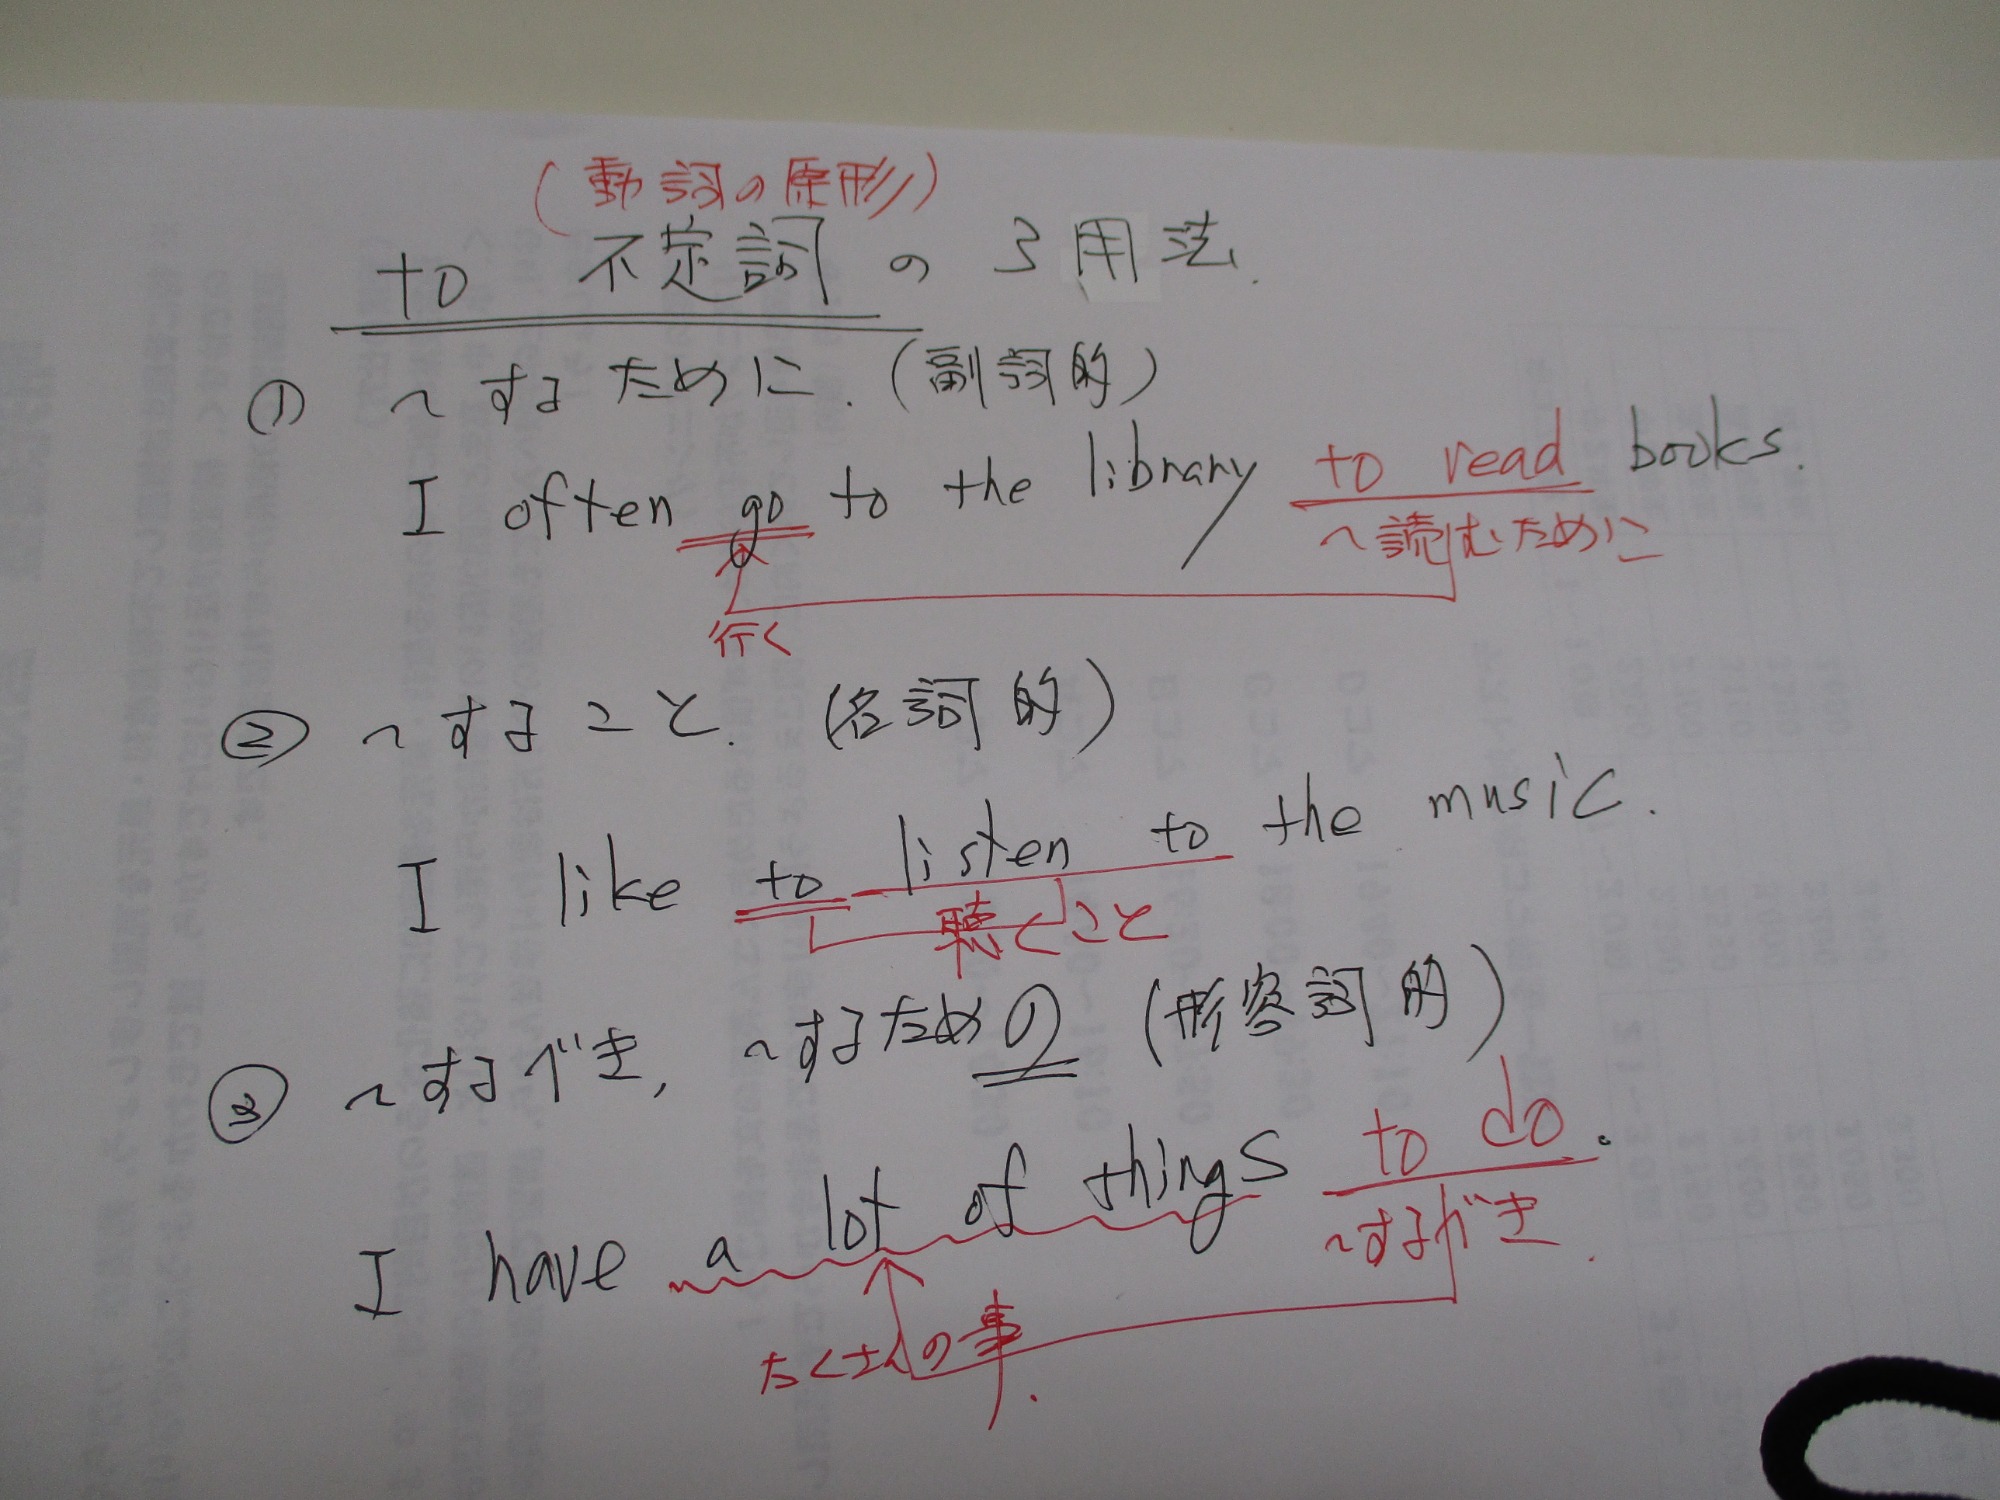 (動詞の原形)
to 不定詞 の 3用法.
① ～するために. (副詞的)
I often go to the library / to read books.
～読むために
行く
② ～すること. (名詞的)
I like to listen to the music.
聴くこと
③ ～するべき, ～するための (形容詞的)
I have a lot of things to do.
～するべき.
たくさんの事.